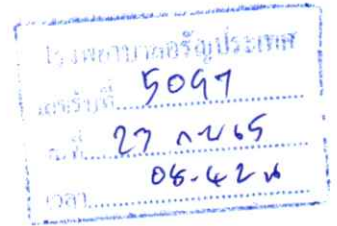 โรงพยาบาลอรัญประเทศ
เลขรับที่ 5097
วันที่ 27 ก.ย 65
เวลา 08.42 น